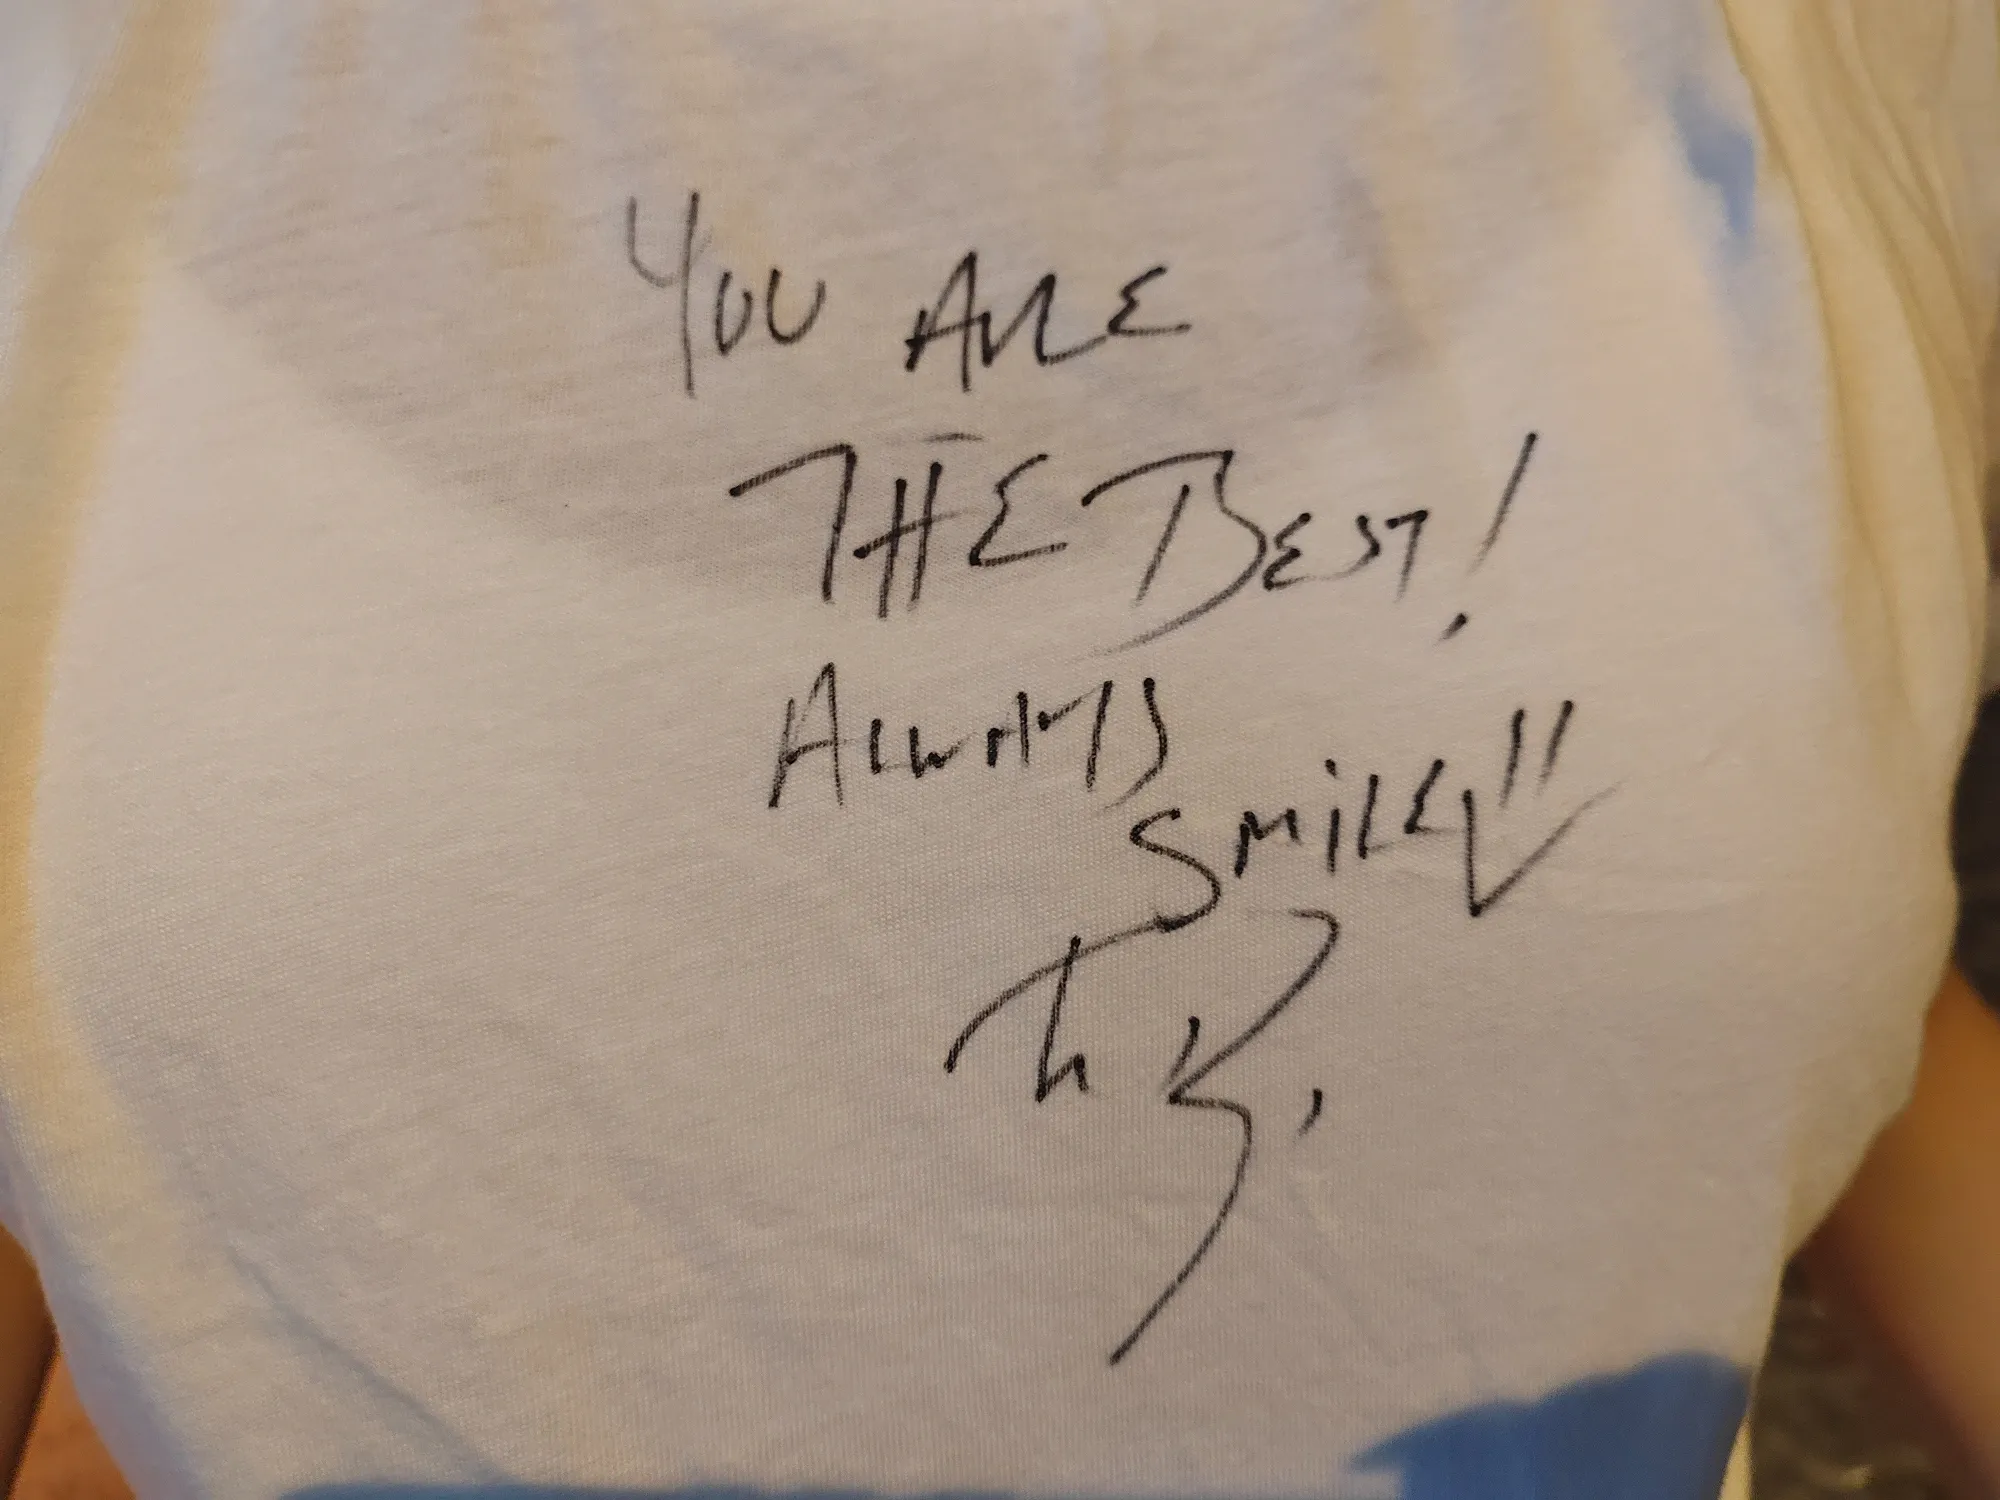 YOU ARE
THE BEST!
ALWAYS
SMILE!!